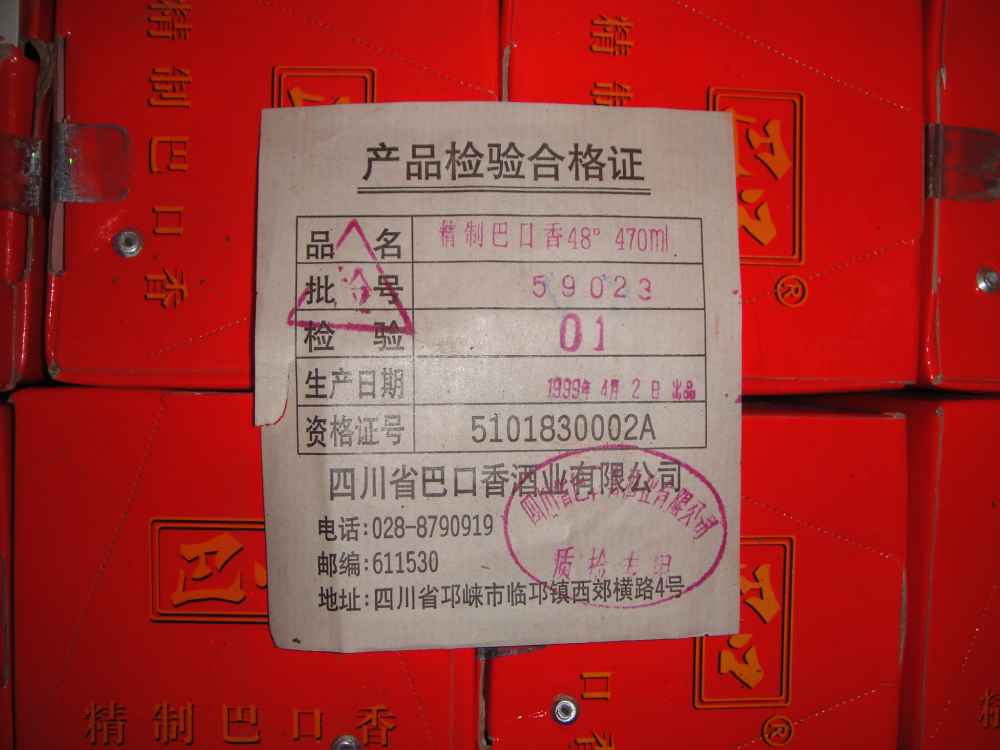 精制巴口香
精
®
产品检验合格证
品名 精制巴口香48° 470ml
批号 59023
检验 01
生产日期 1999年4月2日出品
资格证号 5101830002A
四川省巴口香酒业有限公司
电话:028-8790919
邮编:611530
地址:四川省邛崃市临邛镇西郊横路4号
四川省巴口香酒业有限公司
质检专用
精制巴口香
口
®